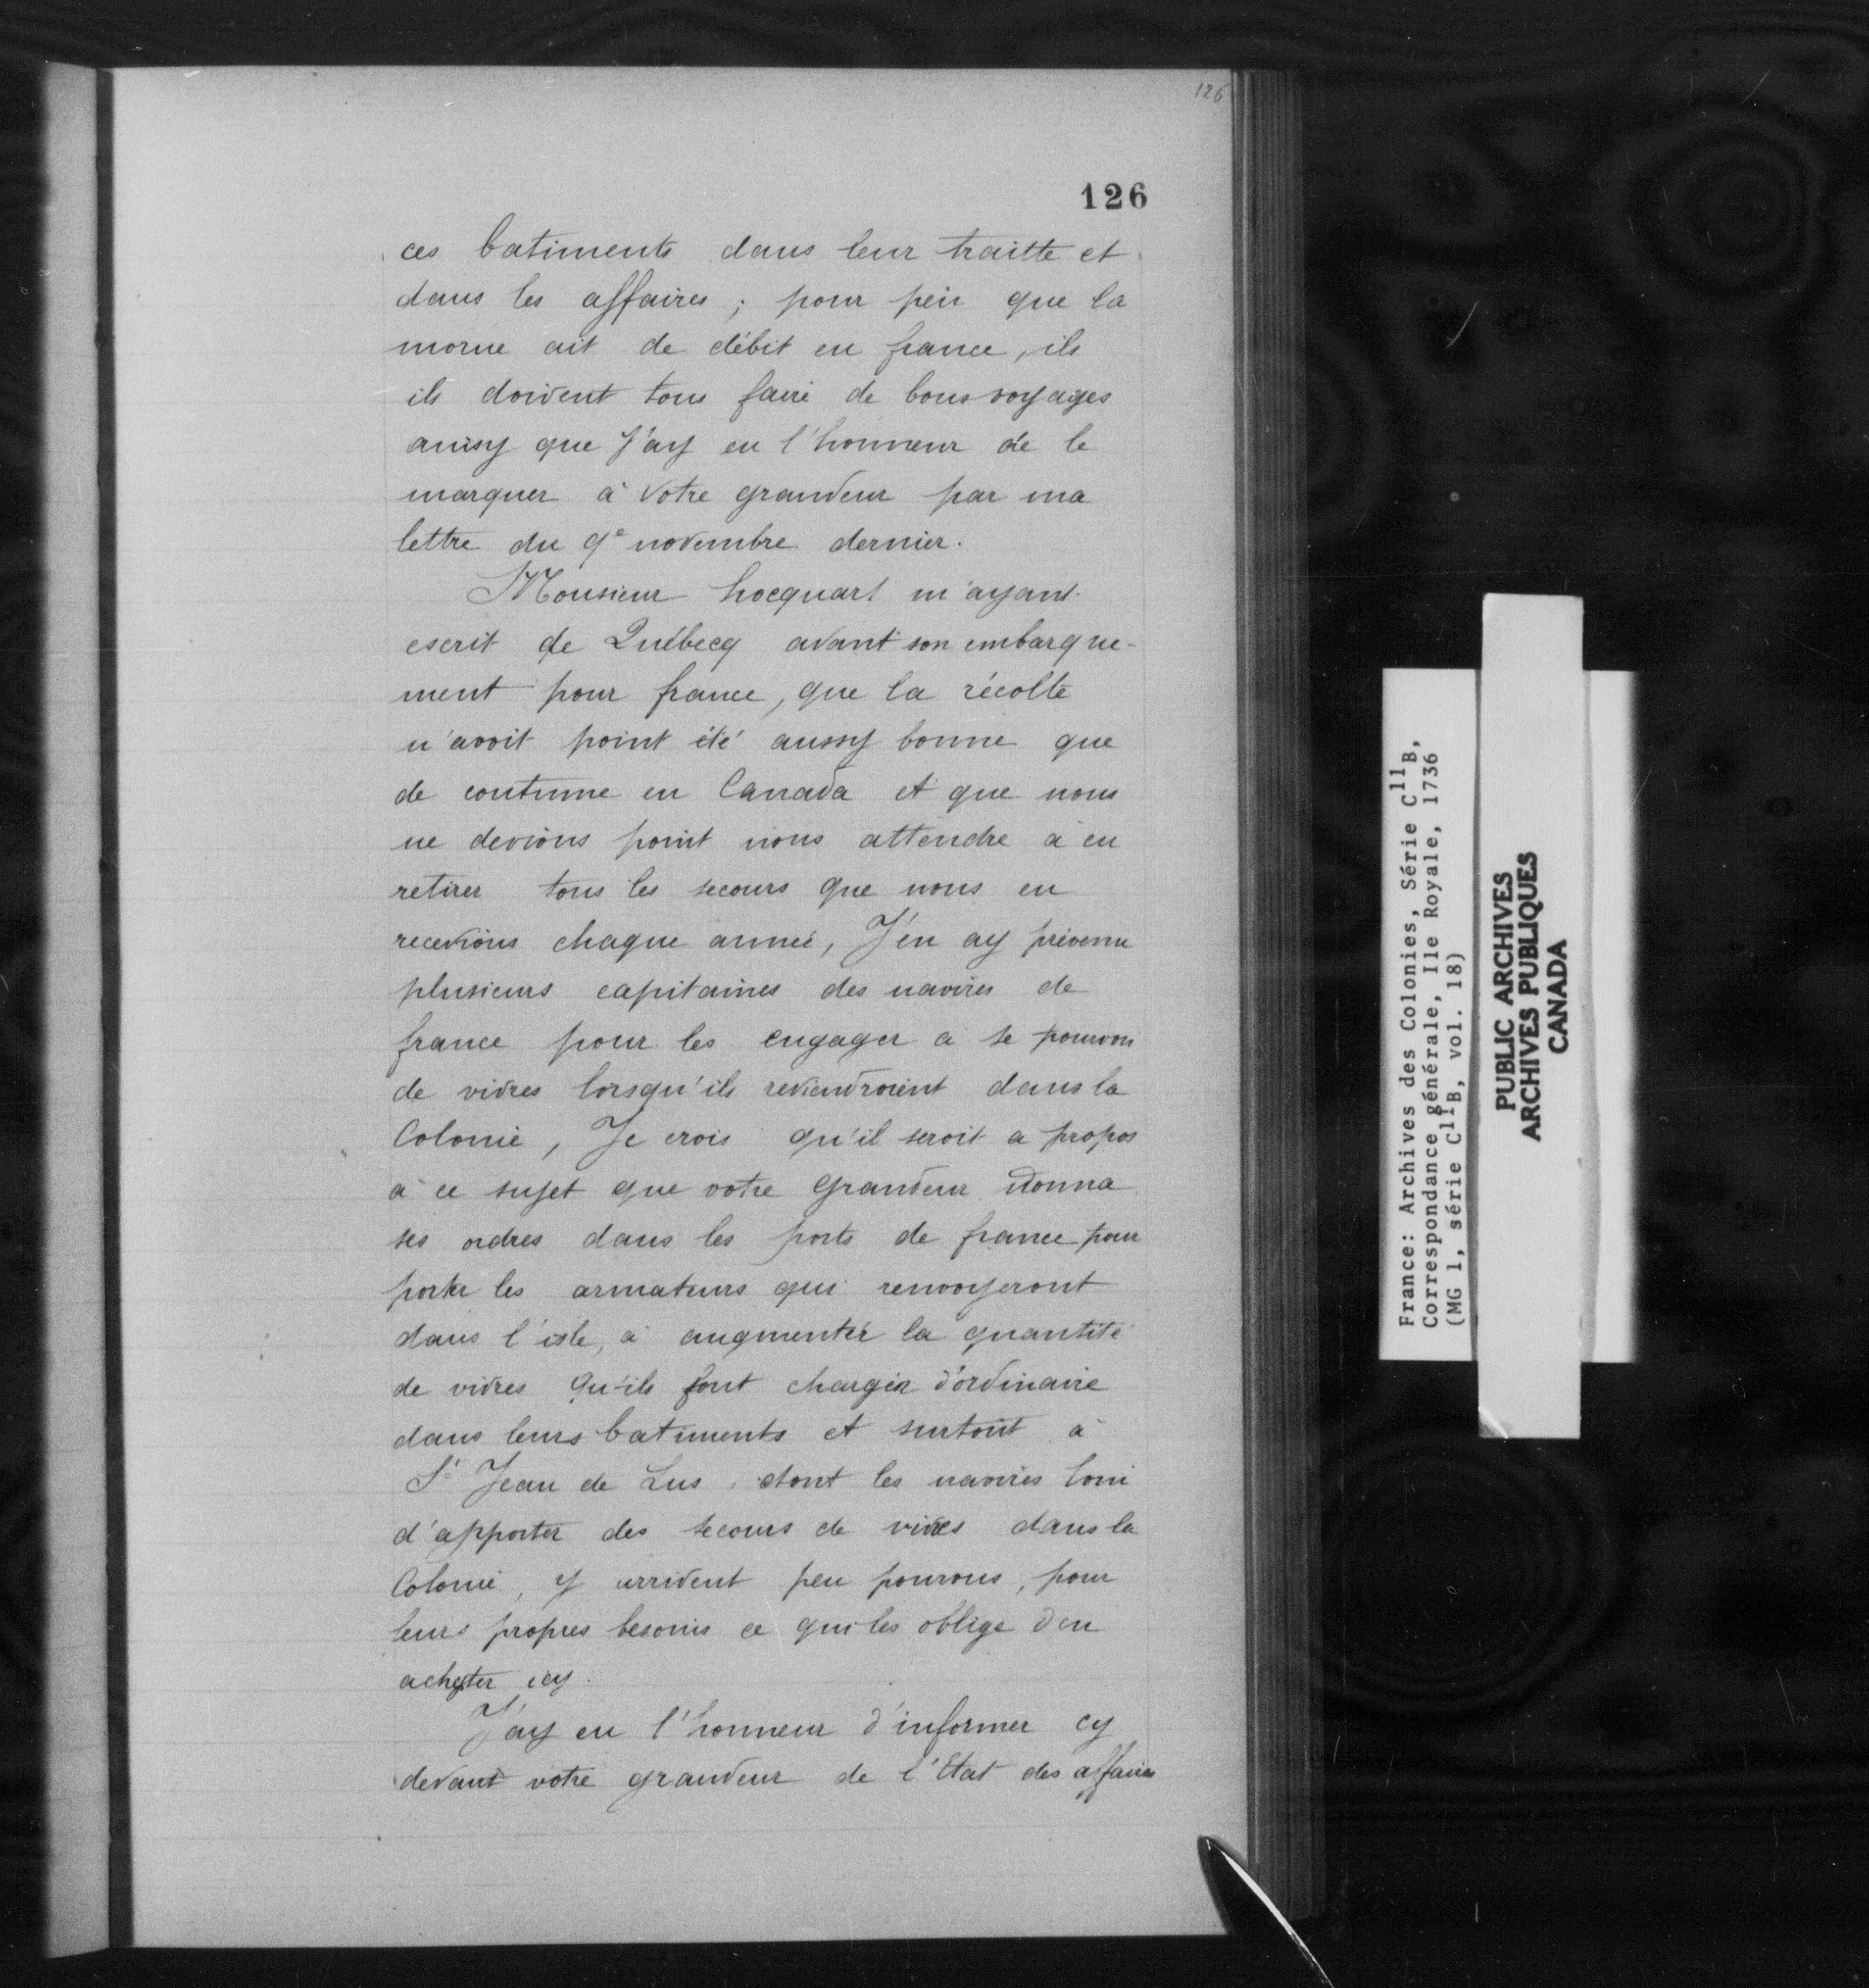 126
126
ces batiments dans leur traitte et
dans les affaires ; pour peu que la
morue ait de débit en france, ils
ils doivent tous faire de bons voyages
ainsy que J'ay eu l'honneur de le
marquer à Votre grandeur par ma
lettre du 9e novembre dernier.
Monsieur hocquart m'ayant
escrit de Québecq avant son embarque-
ment pour france, que la récolte
n'avoit point été aussy bonne que
de coutume en Canada et que nous
ne devions point nous attendre à en
retirer tous les secours que nous en
recevions chaque année, J'en ay prévenu
plusieurs capitaines des navires de
france pour les engager à se pourvoir
de vivres lorsqu'ils reviendroient dans la
Colonie, Je crois qu'il seroit a propos
à ce sujet que votre Grandeur donna
ses ordres dans les ports de france pour
porter les armateurs qui renvoyeront
dans l'isle, à augmenter la quantité
de vivres qu'ils font charger d'ordinaire
dans leurs batiments et surtout à
St Jean de Lus, dont les navires loin
d'apporter des secours de vivres dans la
Colonie, y arrivent peu pourvus, pour
leurs propres besoins ce qui les oblige d'en
acheter icy.
J'ay eu l'honneur d'informer cy
devant votre grandeur de l'Etat des affaires
France: Archives des Colonies, Série C11B,
Correspondance générale, Ile Royale, 1736
(MG 1, série C11B, vol. 18)
PUBLIC ARCHIVES
ARCHIVES PUBLIQUES
CANADA